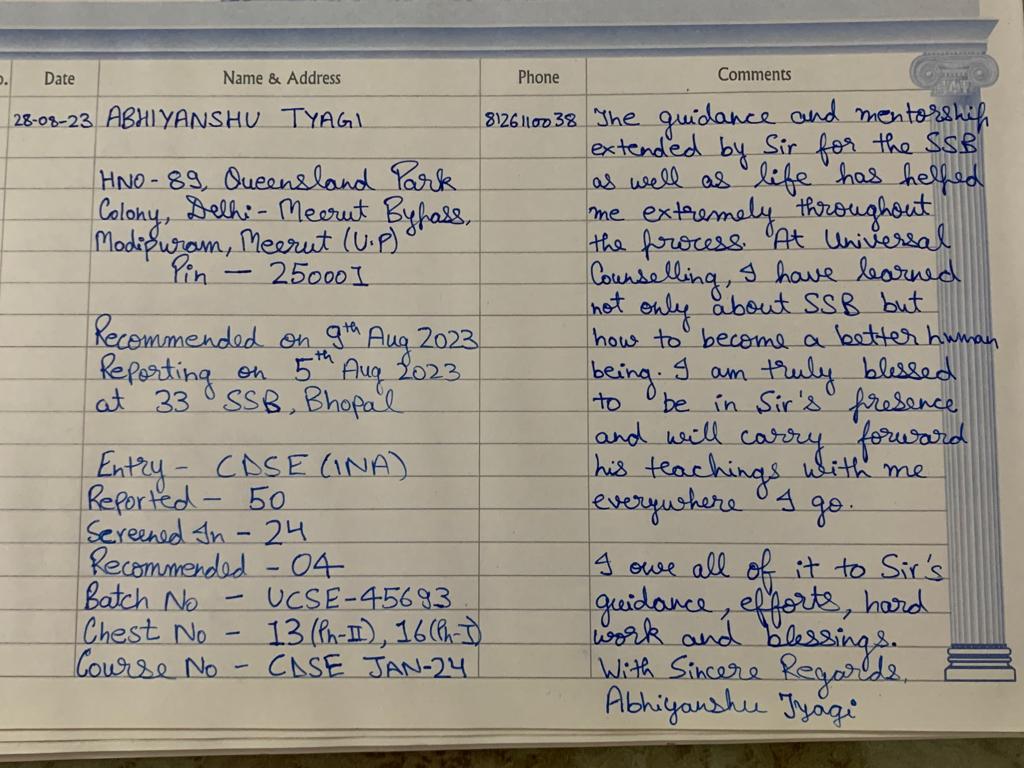 Date Name & Address Phone Comments
28-08-23 ABHIYANSHU TYAGI 8126110038 The guidance and mentorship
extended by Sir for the SSB
HNO-89, Queensland Park as well as life has helped
Colony, Delhi-Meerut Bypass, me extremely throughout
Modipuram, Meerut (U.P) the process. At Universal
Pin — 250001 Counselling, I have learned
not only about SSB but
Recommended on 9th Aug 2023 how to become a better human
Reporting on 5th Aug 2023 being. I am truly blessed
at 33 SSB, Bhopal to be in Sir's presence
and will carry forward
Entry - CDSE (INA) his teachings with me
Reported - 50 everywhere I go.
Screened In - 24
Recommended - 04 I owe all of it to Sir's
Batch No - UCSE-45693 guidance, efforts, hard
Chest No - 13 (Ph-II), 16 (Ph-I) work and blessings.
Course No - CDSE JAN-24 With Sincere Regards,
Abhiyanshu Tyagi